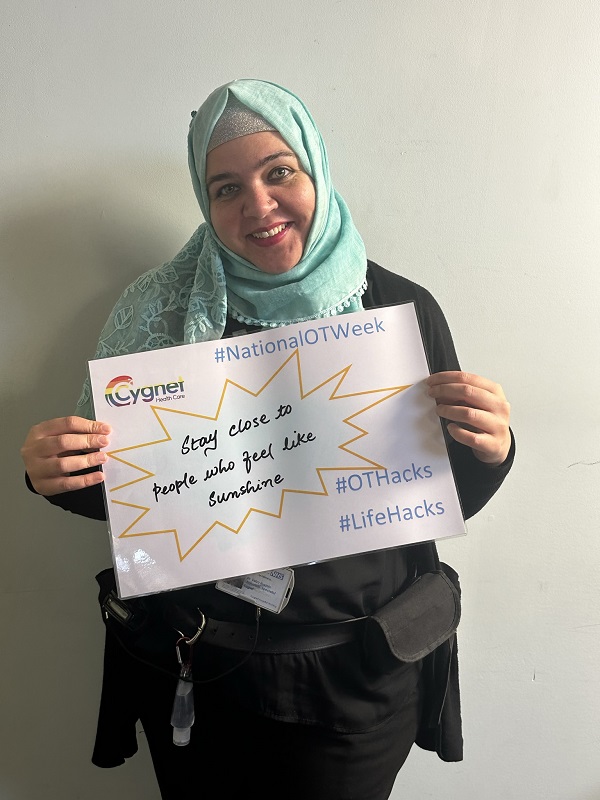 #NationalOTWeek
Cygnet
Health Care
Stay close to
people who feel like
sunshine
#OTHacks
#LifeHacks